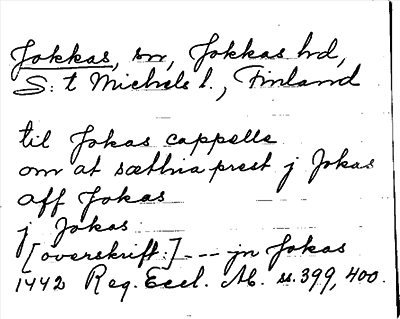 Jokkas, sn, Jokkas hd,
S:t Michels l., Finland
til Jokas cappelle
om at sæthia prest j Jokas
aff Jokas
j Jokas
[overskrift:] --- jn Jokas
1442 Reg. Eccl. Ab. s. 399, 400.